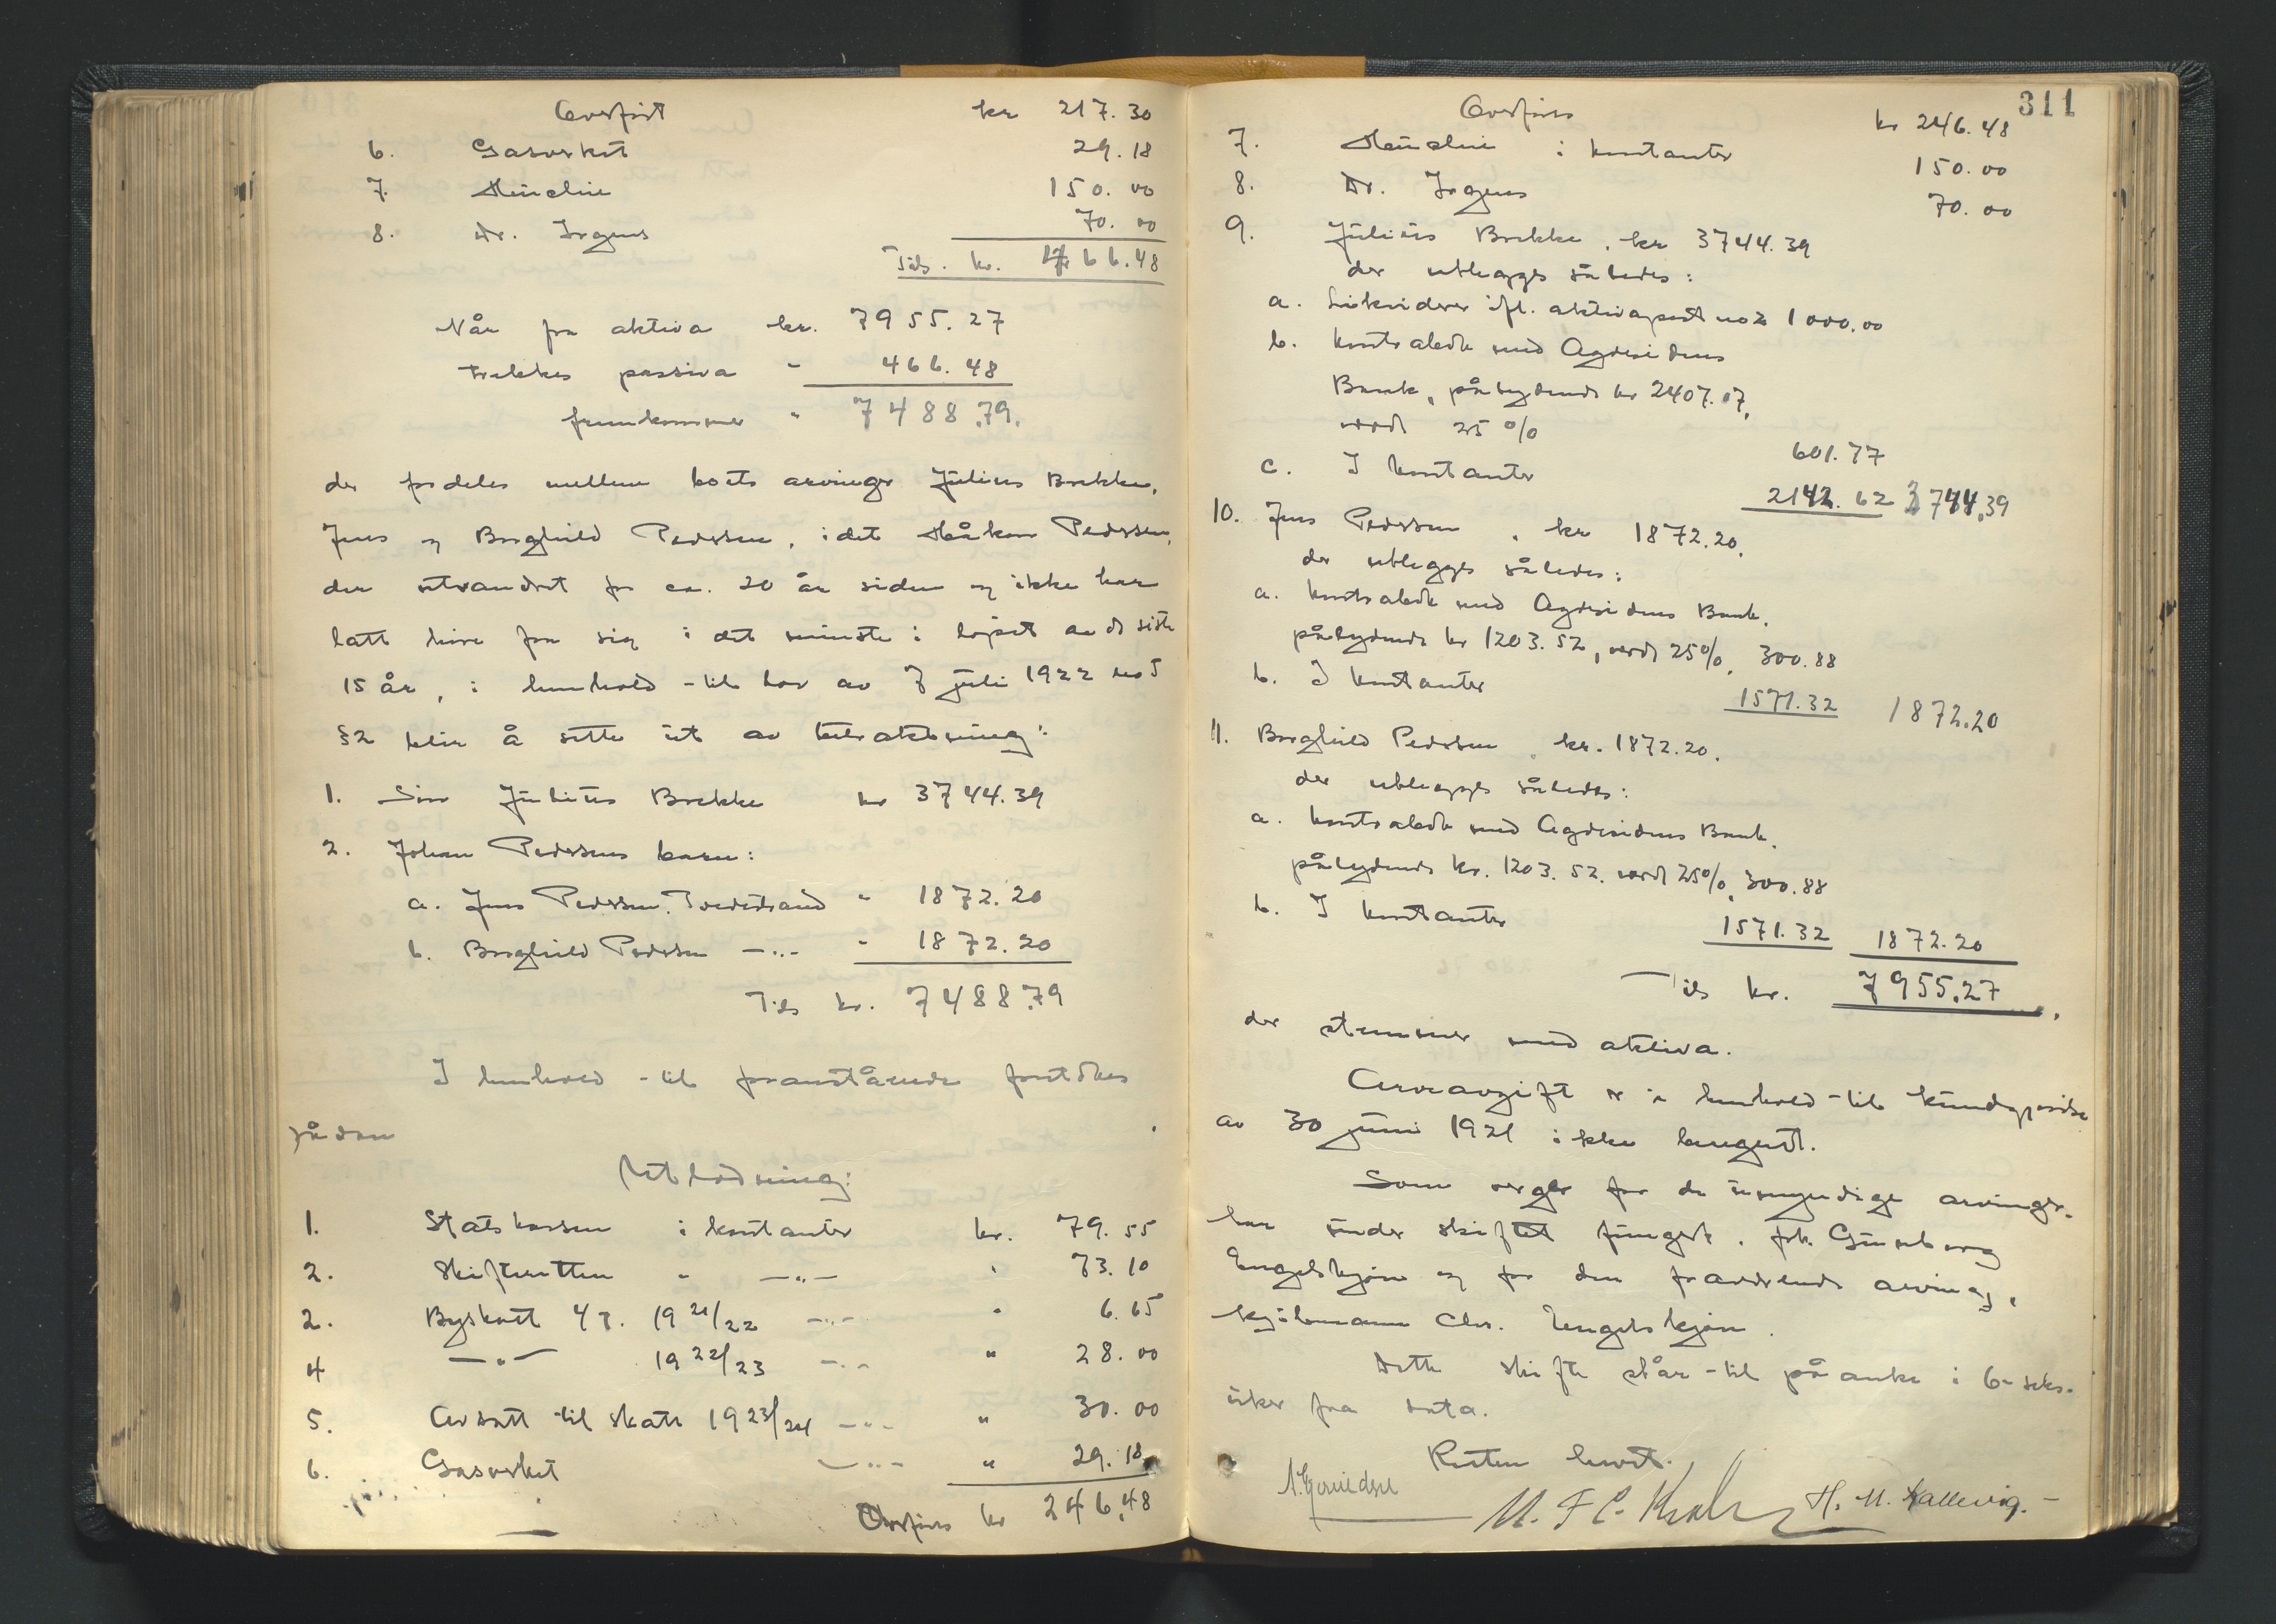 Overført kr 217.30
6. Gasverket 29.18
7. 150.00
8. Dr. Irgens 70.00
Tils. kr. 466.48
Når fra aktiva kr. 7955.27
trekkes passiva - 466.48
fremkommer " 7488.79.
der fordeles mellem boets arvinger Julius Brekke,
Jens og Borghild Pedersen, idet Håkon Pedersen,
der utvandret for ca. 20 år siden og ikke har
latt høre fra sig i det minste i løpet av de siste
15 år, i henhold til lov av 7 juli 1922 no 5
§2 blir å sette ut av betraktning:
1. Julius Brekke kr 3744.39
2. Johan Pedersens barn:
a. Jens Pedersen, Tvedestrand " 1872.20
b. Borghild Pedersen —"— " 1872.20
Tils kr. 7488.79
I henhold til foranstående foretokes
sådan
Utlodning:
1. Statskassen i kontanter kr. 79.55
2. Skifteretten " —"— " 73.10
2. Byskatt 4 T. 1921/22 —"— " 6.65
4 —"— 1922/23 —"— " 28.00
5. Avsatt til skatt 1923/24 —"— " 30.00
6. Gasverket —"— " 29.18
Overføres kr 246.48
311
Overføres kr 246.48
7. i kontanter 150.00
8. Dr. Irgens 70.00
9. Julius Brekke, kr 3744.39
der utlegges således:
a. Likviderer ifl. aktivapost no 2 1000.00
b. Kontrabok med Agdesidens
Bank, pålydende kr 2407.07,
verdt 25 % 601.77
c. I kontanter 2142.62 3744,39
10. Jens Pedersen, kr 1872.20.
der utlegges således:
a. Kontrabok med Agdesidens Bank,
pålydende kr 1203.52, verdt 25%, 300.88
b. I kontanter 1571.32 1872.20
11. Borghild Pedersen, kr. 1872.20.
der utlegges således:
a. Kontrabok med Agdesidens Bank,
pålydende kr. 1203.52. verdt 25%, 300.88
b. I kontanter 1571.32 1872.20
Tils kr. 7955.27.
der stemmer med aktiva.
Arveavgift er i henhold til kundgjørelse
av 30 juni 1921 ikke beregnet.
Som verger for de umyndige arvinger
har under skiftet fungert, frk. Gunborg
Engelskjøn og for den fraværende arving,
kjøbmann Chr. Engelskjøn.
Dette skifte står til påanke i 6-seks-
uker fra data.
Retten hevet.
H. M. Kallevig.-